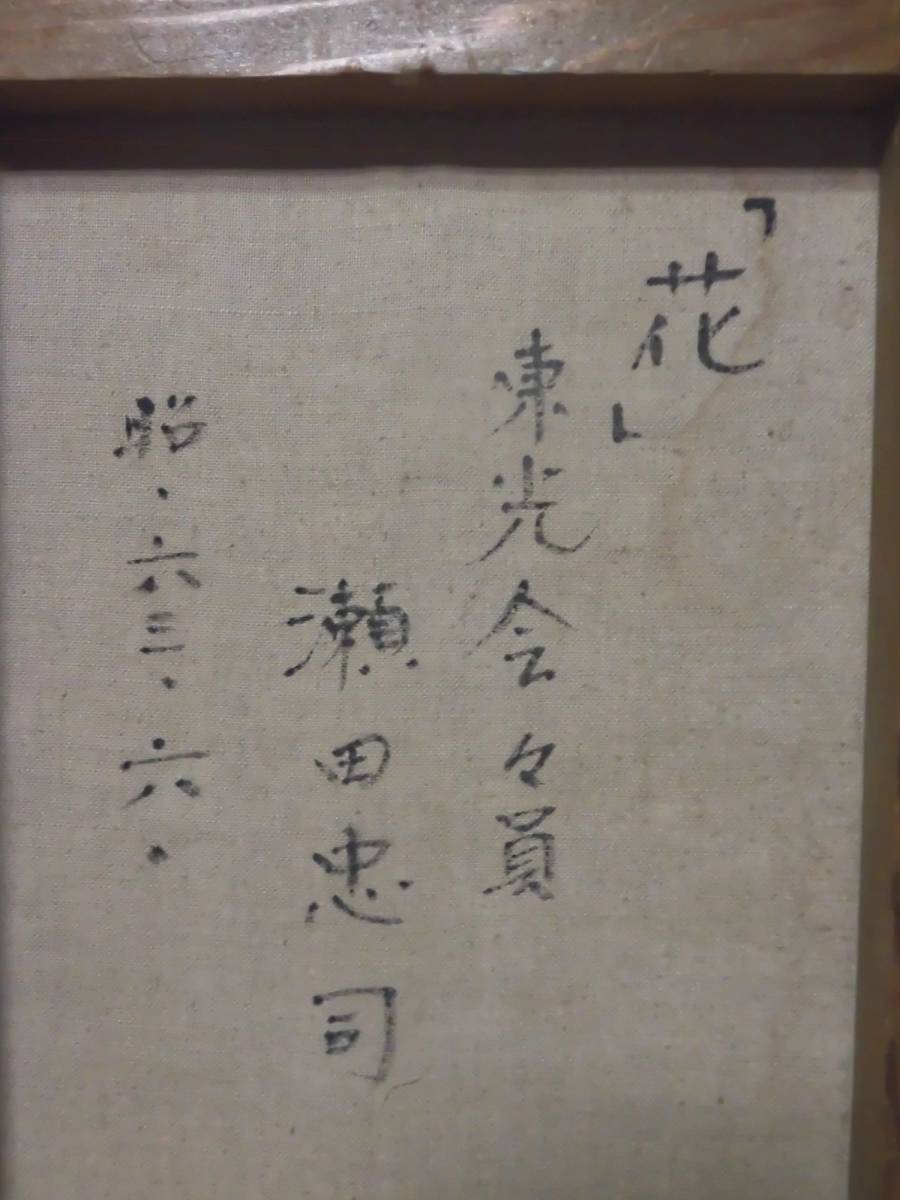 「花」
東光会々員
瀬田忠司
昭・六三・六・